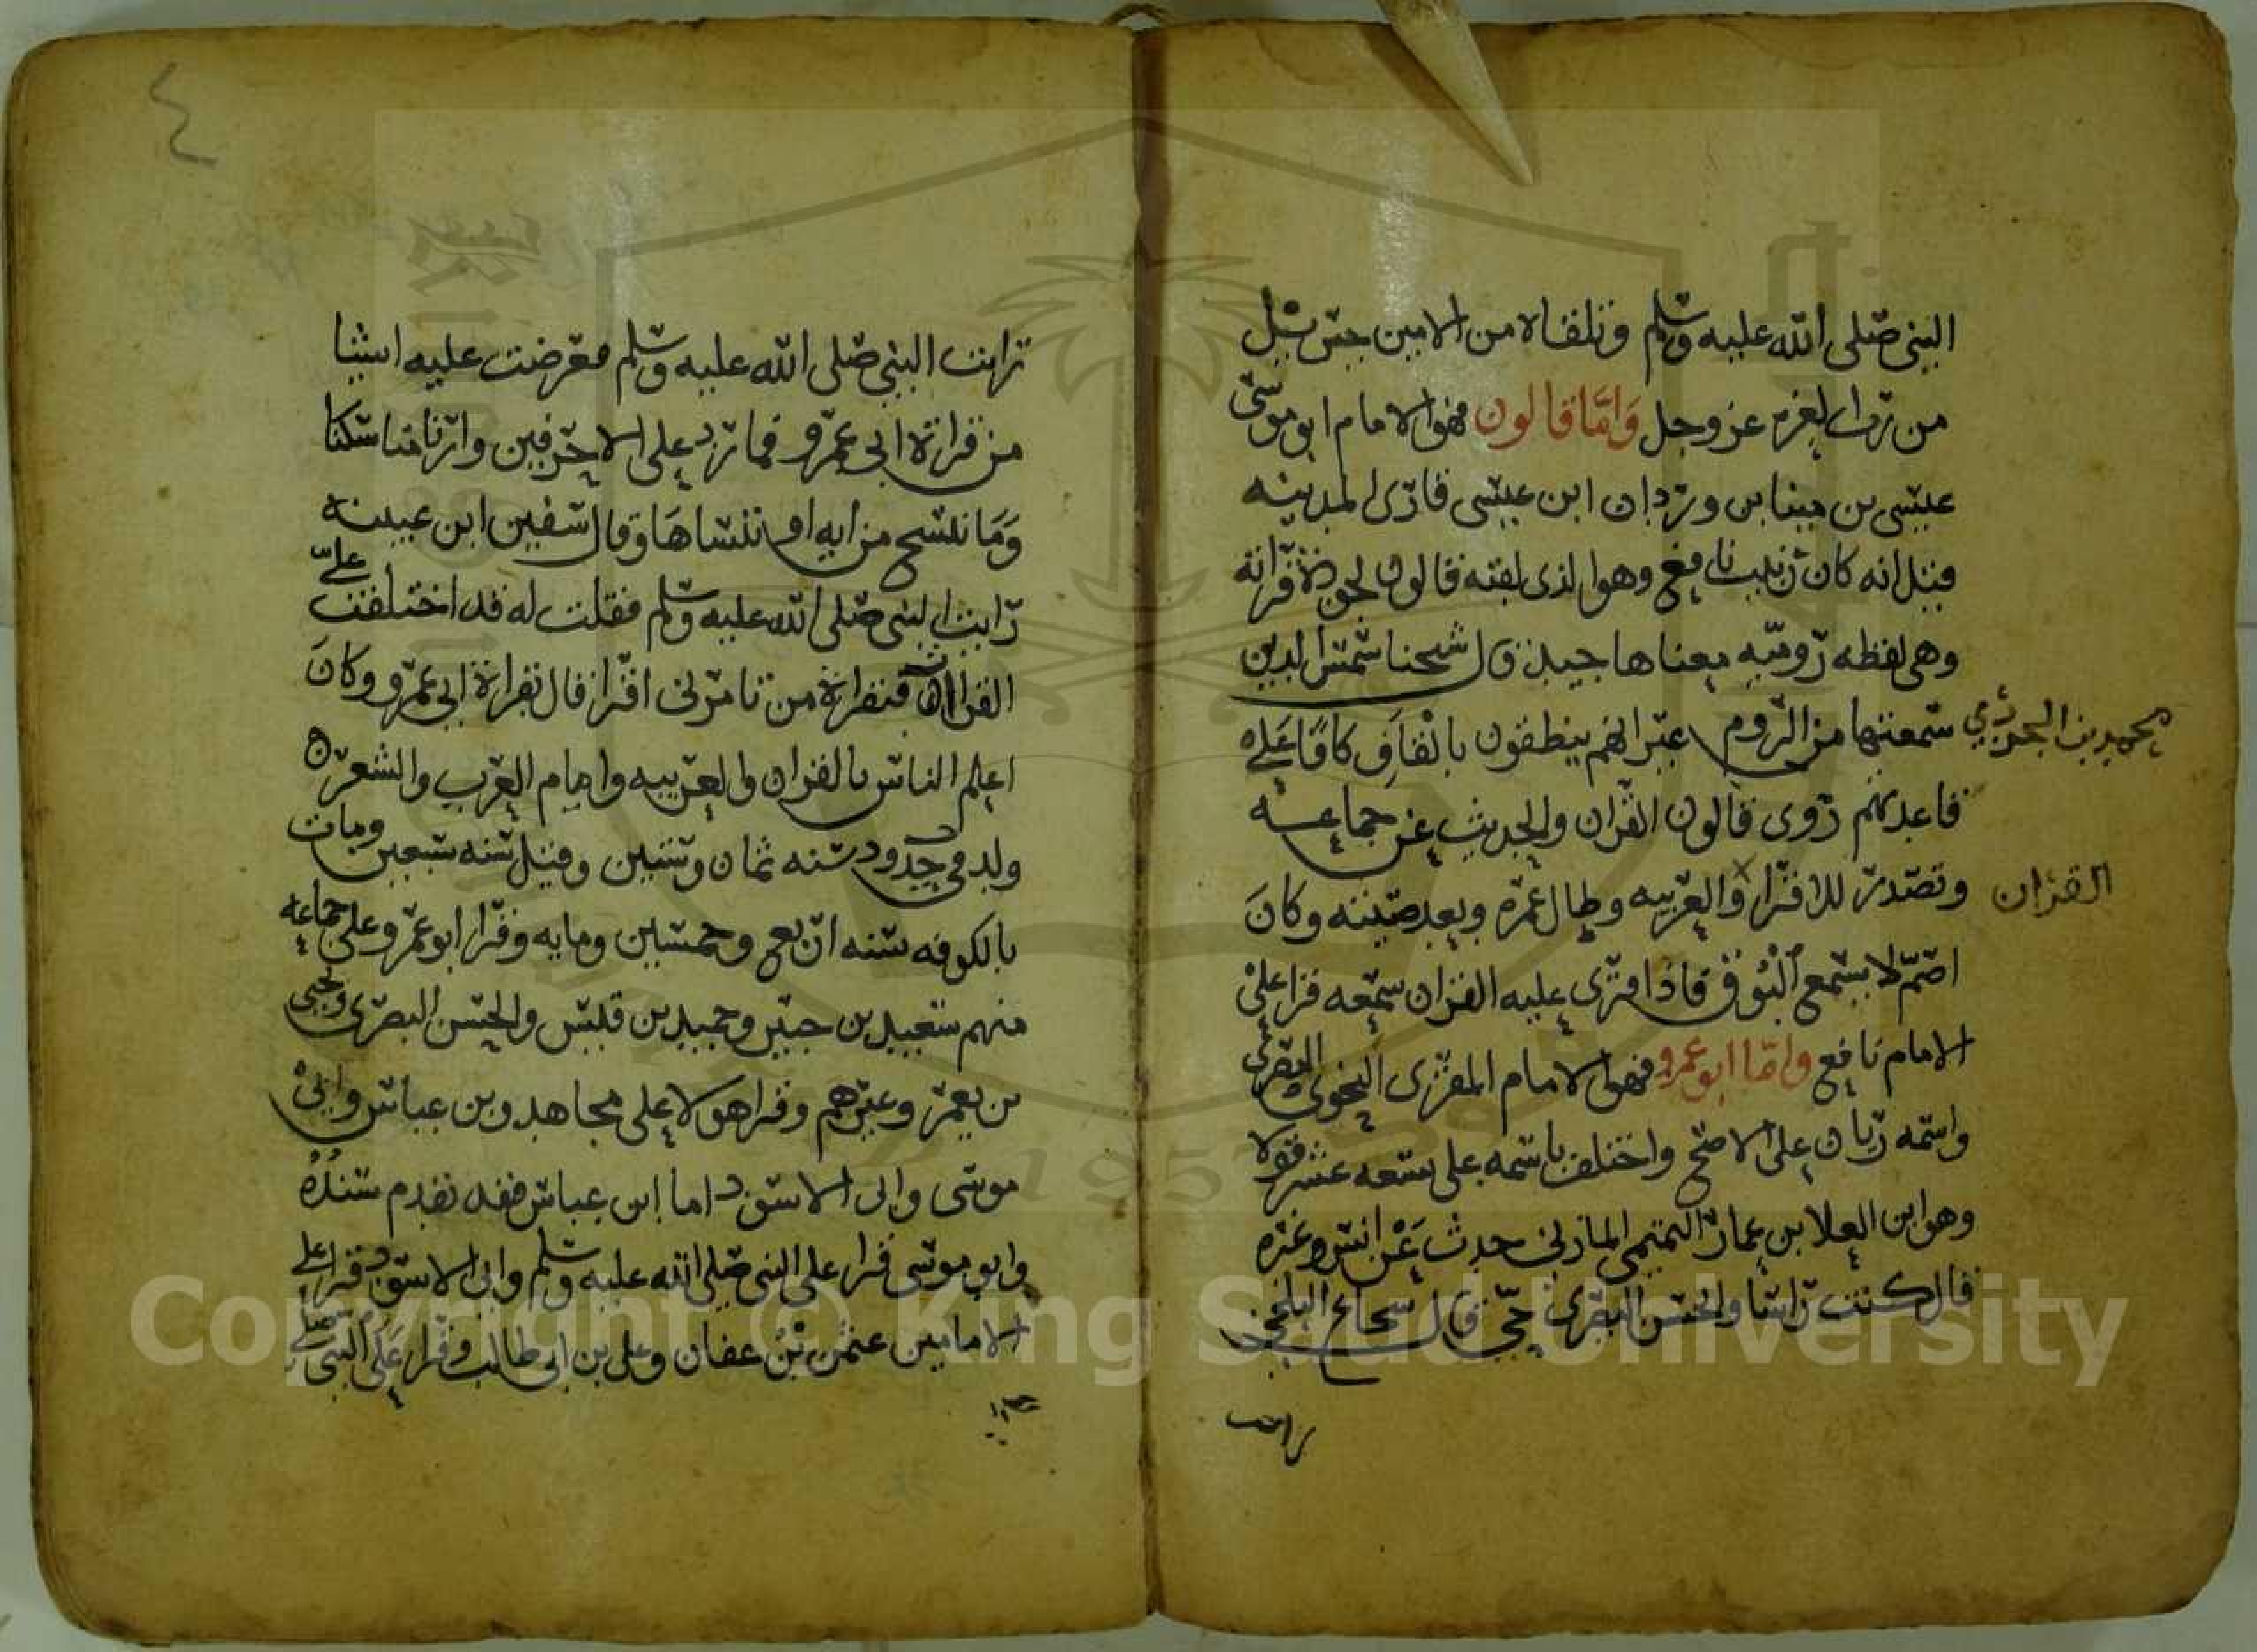 النبي صلى الله عليه وسلم وتلقاه من الامين جبريل
من رب العزه عز وجل واما قالون فهو الامام ابو موسى
عيسى بن مينا بن وردان ابن عيسى قارى المدينه
قيل انه كان ربيب نافع وهو الذى لقبه قالون لجودة قرأته
وهى لفظه روميه معناها جيد قال شيخنا شمس الدين
محمد بن الجزري سمعتها من الروم غير انهم ينطقون بالقاف كافا على
قاعدتهم روى قالون القرآن والحديث عن جماعه
وتصدر للاقرا والعربيه وطال عمره وبعد صيته وكان
القران
اصم لا يسمع البوق فاذا قرى عليه القران سمعه قرا على
الامام نافع واما ابو عمرو فهو الامام المقرى النحوى البصرى
واسمه زبان على الاصح واختلف باسمه على تسعه عشر قولا
وهو ابن العلا بن عمار التميمى المازنى حدث عن انس وغيره
قال كنت راسا والحسن البصرى حى قال شجاع البلخى
رايت
٤
رايت النبي صلى الله عليه وسلم فعرضت عليه اشيا
من قراة ابى عمرو فما رد على الا حرفين وارنا مناسكنا
وما ننسخ من ايه او ننساها وقال سفين ابن عيينه
رايت النبى صلى الله عليه وسلم فقلت له قد اختلفت على
القراات فبقراة من تامرنى اقرا قال بقراة ابى عمرو وكان
اعلم الناس بالقران والعربيه وامام العرب والشعر
ولد فى حدود سنه ثمان وستين وقيل سنه سبعين ومات
بالكوفه سنه اربع وخمسين ومايه وقرا ابو عمرو على جماعه
منهم سعيد بن جبير وحميد بن قيس والحسن البصرى ويحيى
بن يعمر وغيرهم وقرا هولا على مجاهد وبن عباس وابى
موسى وابى الاسود اما ابن عباس فقد تقدم سنده
وابو موسى قرا على النبى صلى الله عليه وسلم وابى الاسود قرا على
الامامين عثمن بن عفان وعلى بن ابى طالب وقرا على النبى